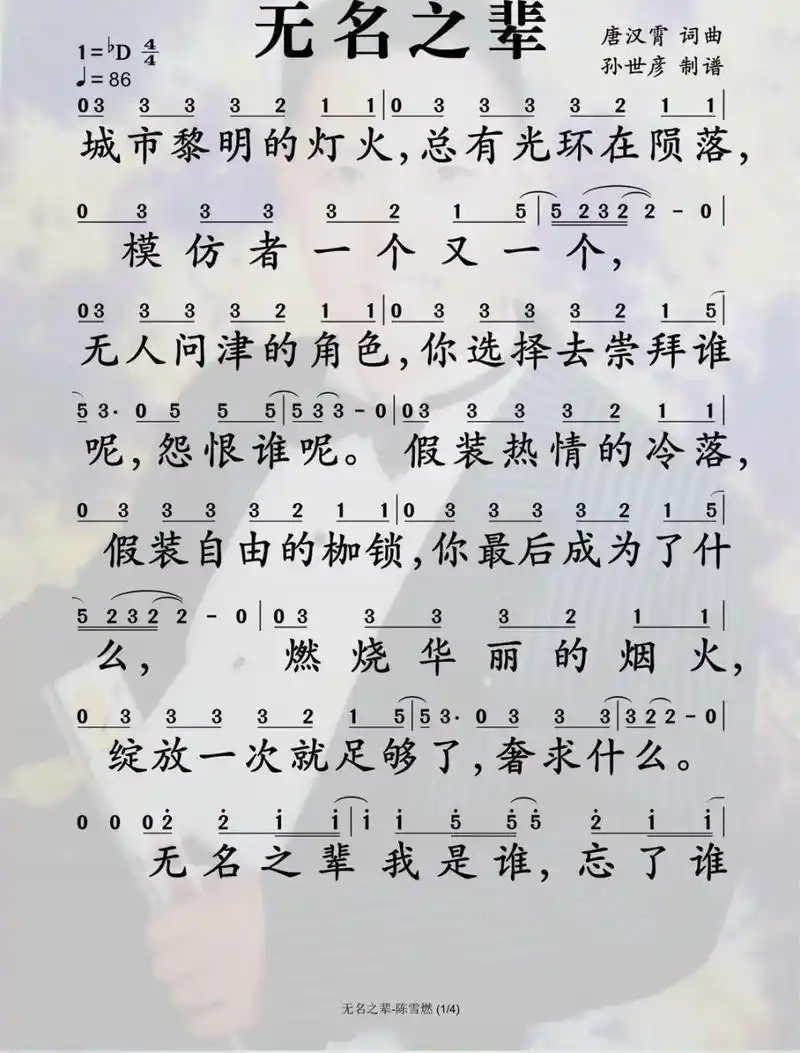 无名之辈
1=♭D 4/4
♩=86
唐汉霄 词曲
孙世彦 制谱
03 3 3 3 2 1 1|0 3 3 3 3 2 1 1|
城市黎明的灯火,总有光环在陨落,
0 3 3 3 3 2 1 5|5 232 2 - 0|
模仿者一个又一个,
03 3 3 3 2 1 1|0 3 3 3 3 2 1 5|
无人问津的角色,你选择去崇拜谁
5 3· 0 5 5 5|53 3 - 0|03 3 3 3 2 1 1|
呢,怨恨谁呢。假装热情的冷落,
0 3 3 3 3 2 1 1|0 3 3 3 3 2 1 5|
假装自由的枷锁,你最后成为了什
5 232 2 - 0|03 3 3 3 2 1 1|
么,燃烧华丽的烟火,
0 3 3 3 3 2 1 5|5 3· 0 3 3 3|32 2 - 0|
绽放一次就足够了,奢求什么。
0 0 02̇ 2̇ i i|i i 5̇ 5̇ 5̇ 2̇ i i|
无名之辈我是谁,忘了谁
无名之辈-陈雪燃 (1/4)